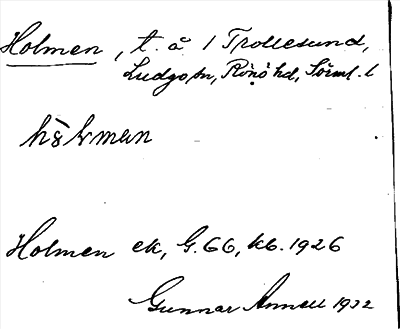 Holmen, t. å. 1 Trollesund,
Ludgo sn, Rönö hd, Sörml. l
Holmen ek, G. 66, kb. 1926
Gunnar Annell 1932